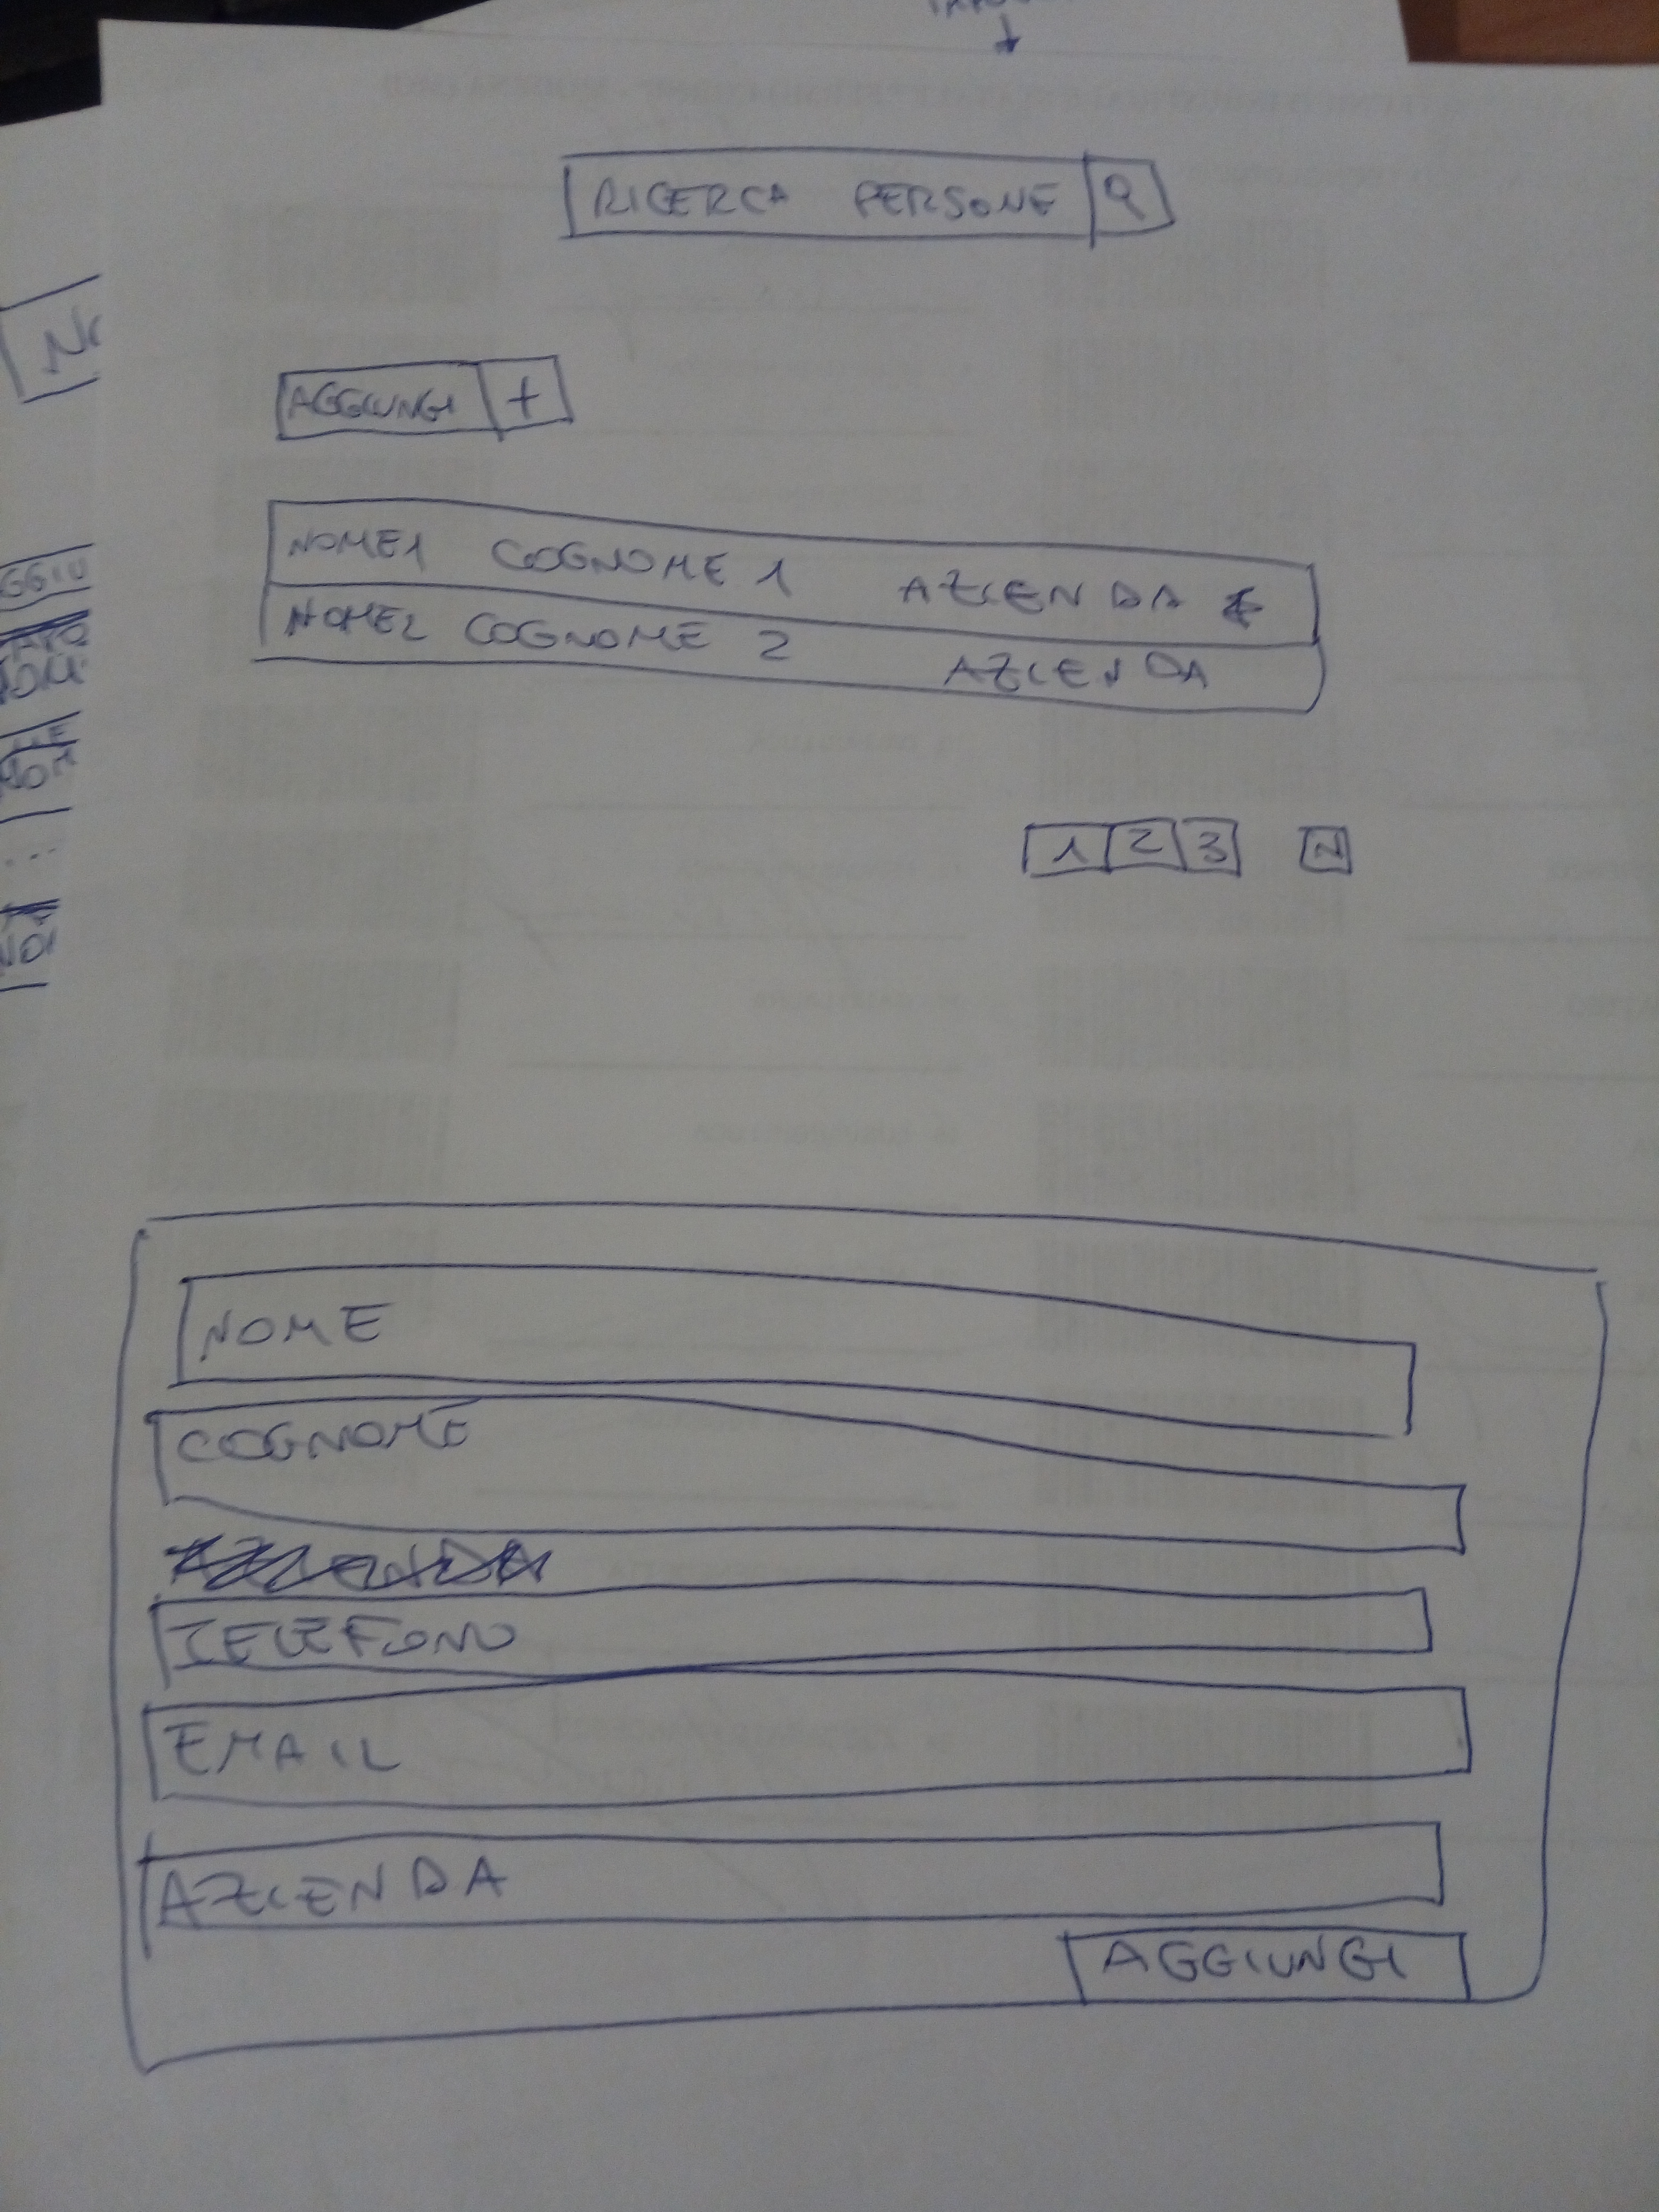 RICERCA PERSONE
AGGIUNGI +
NOME1 COGNOME 1 AZIENDA
NOME2 COGNOME 2 AZIENDA
1 2 3 N
NOME
COGNOME
TELEFONO
EMAIL
AZIENDA
AGGIUNGI